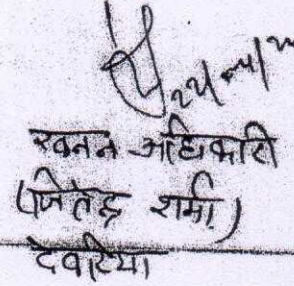 खनन अधिकारी
(जितेन्द्र शर्मा)
देवरिया